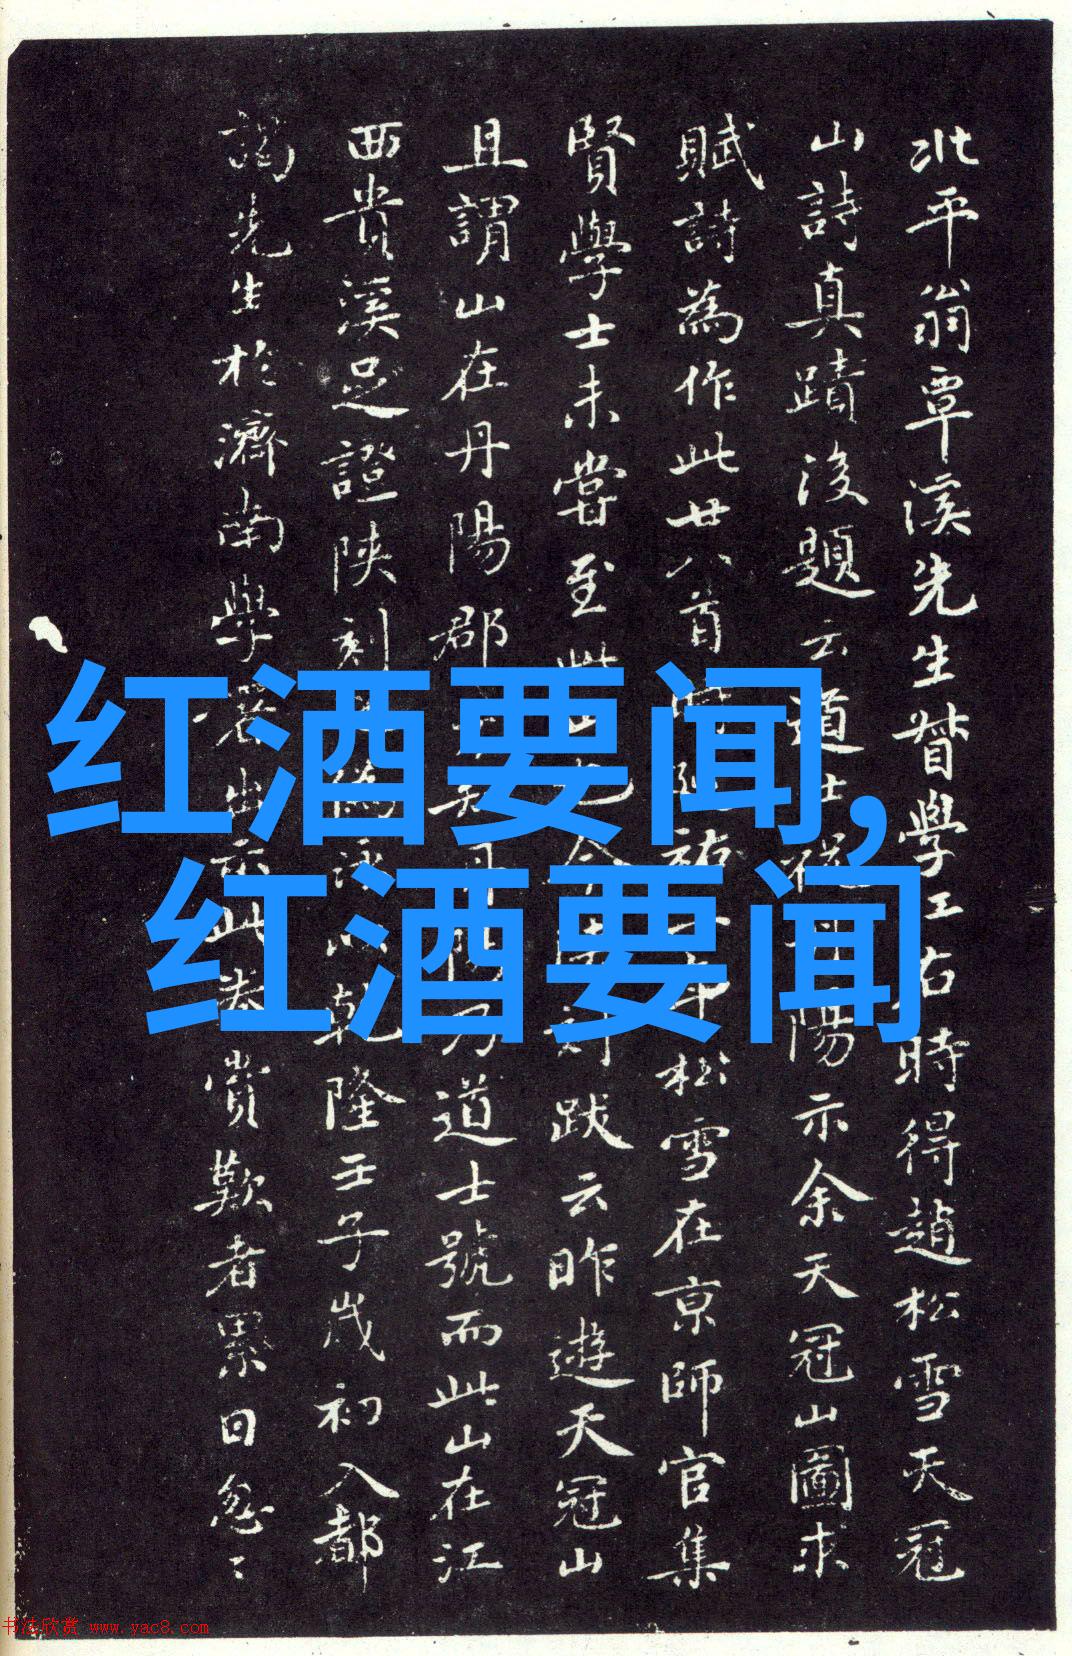 北平翁覃溪先生督學江右時得趙松雪天冠
山詩真蹟後題云道士 陽示余天冠山圖求
賦詩為作此廿八首 松雪在京師官集
賢學士未嘗至此山也今 刻跋云昨遊天冠山
且謂山在丹陽郡 丹陽乃道士號而此山在江
西貴溪足證陝刻 乾隆壬子歲初入都
謁先生於濟南學署出示此卷賞歎者累日忽〻
红酒要闻,
红酒要闻
书法欣赏 www.yac8.com